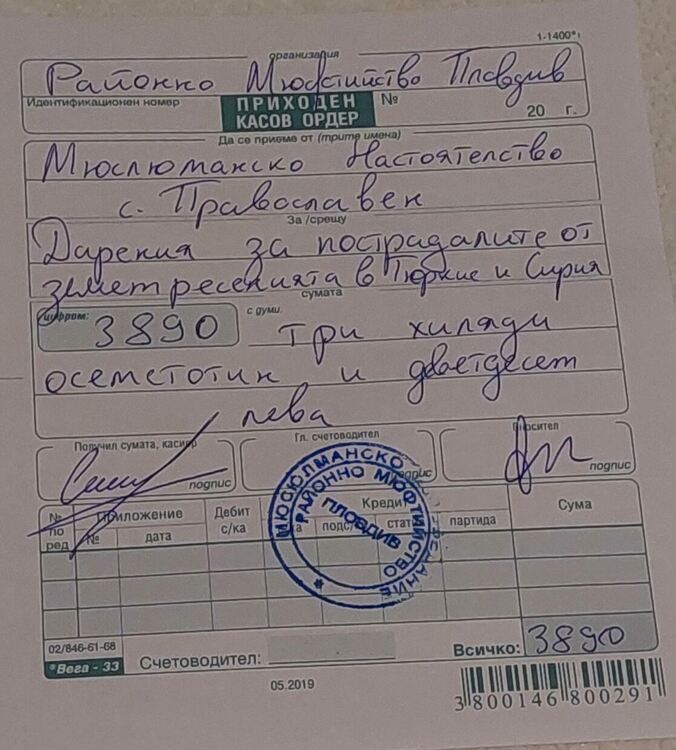 1-1400*1
организация
Районно Мюфтийство Пловдив
Идентификационен номер
ПРИХОДЕН
КАСОВ ОРДЕР
№
20 г.
Да се приеме от (трите имена)
Мюслюманско Настоятелство
с. Православен
За /срещу
Дарения за пострадалите от
земетресенията в Тюркие и Сирия
сумата
цифром: 3890
с думи.
три хиляди
осемстотин и деветдесет
лева
Получил сумата, касиер
Гл. счетоводител
Вносител
подпис
подпис
подпис
№ по ред
Приложение
№
дата
Дебит с/ка
Кредит
подс/ка
стат.
партида
Сума
МЮСЮЛМАНСКО ВЕРОИЗПОВЕДАНИЕ
РАЙОННО МЮФТИЙСТВО
ПЛОВДИВ
02/846-61-68
*Вега - 33
Счетоводител:
Всичко: 3890
05.2019
3 800146 800291